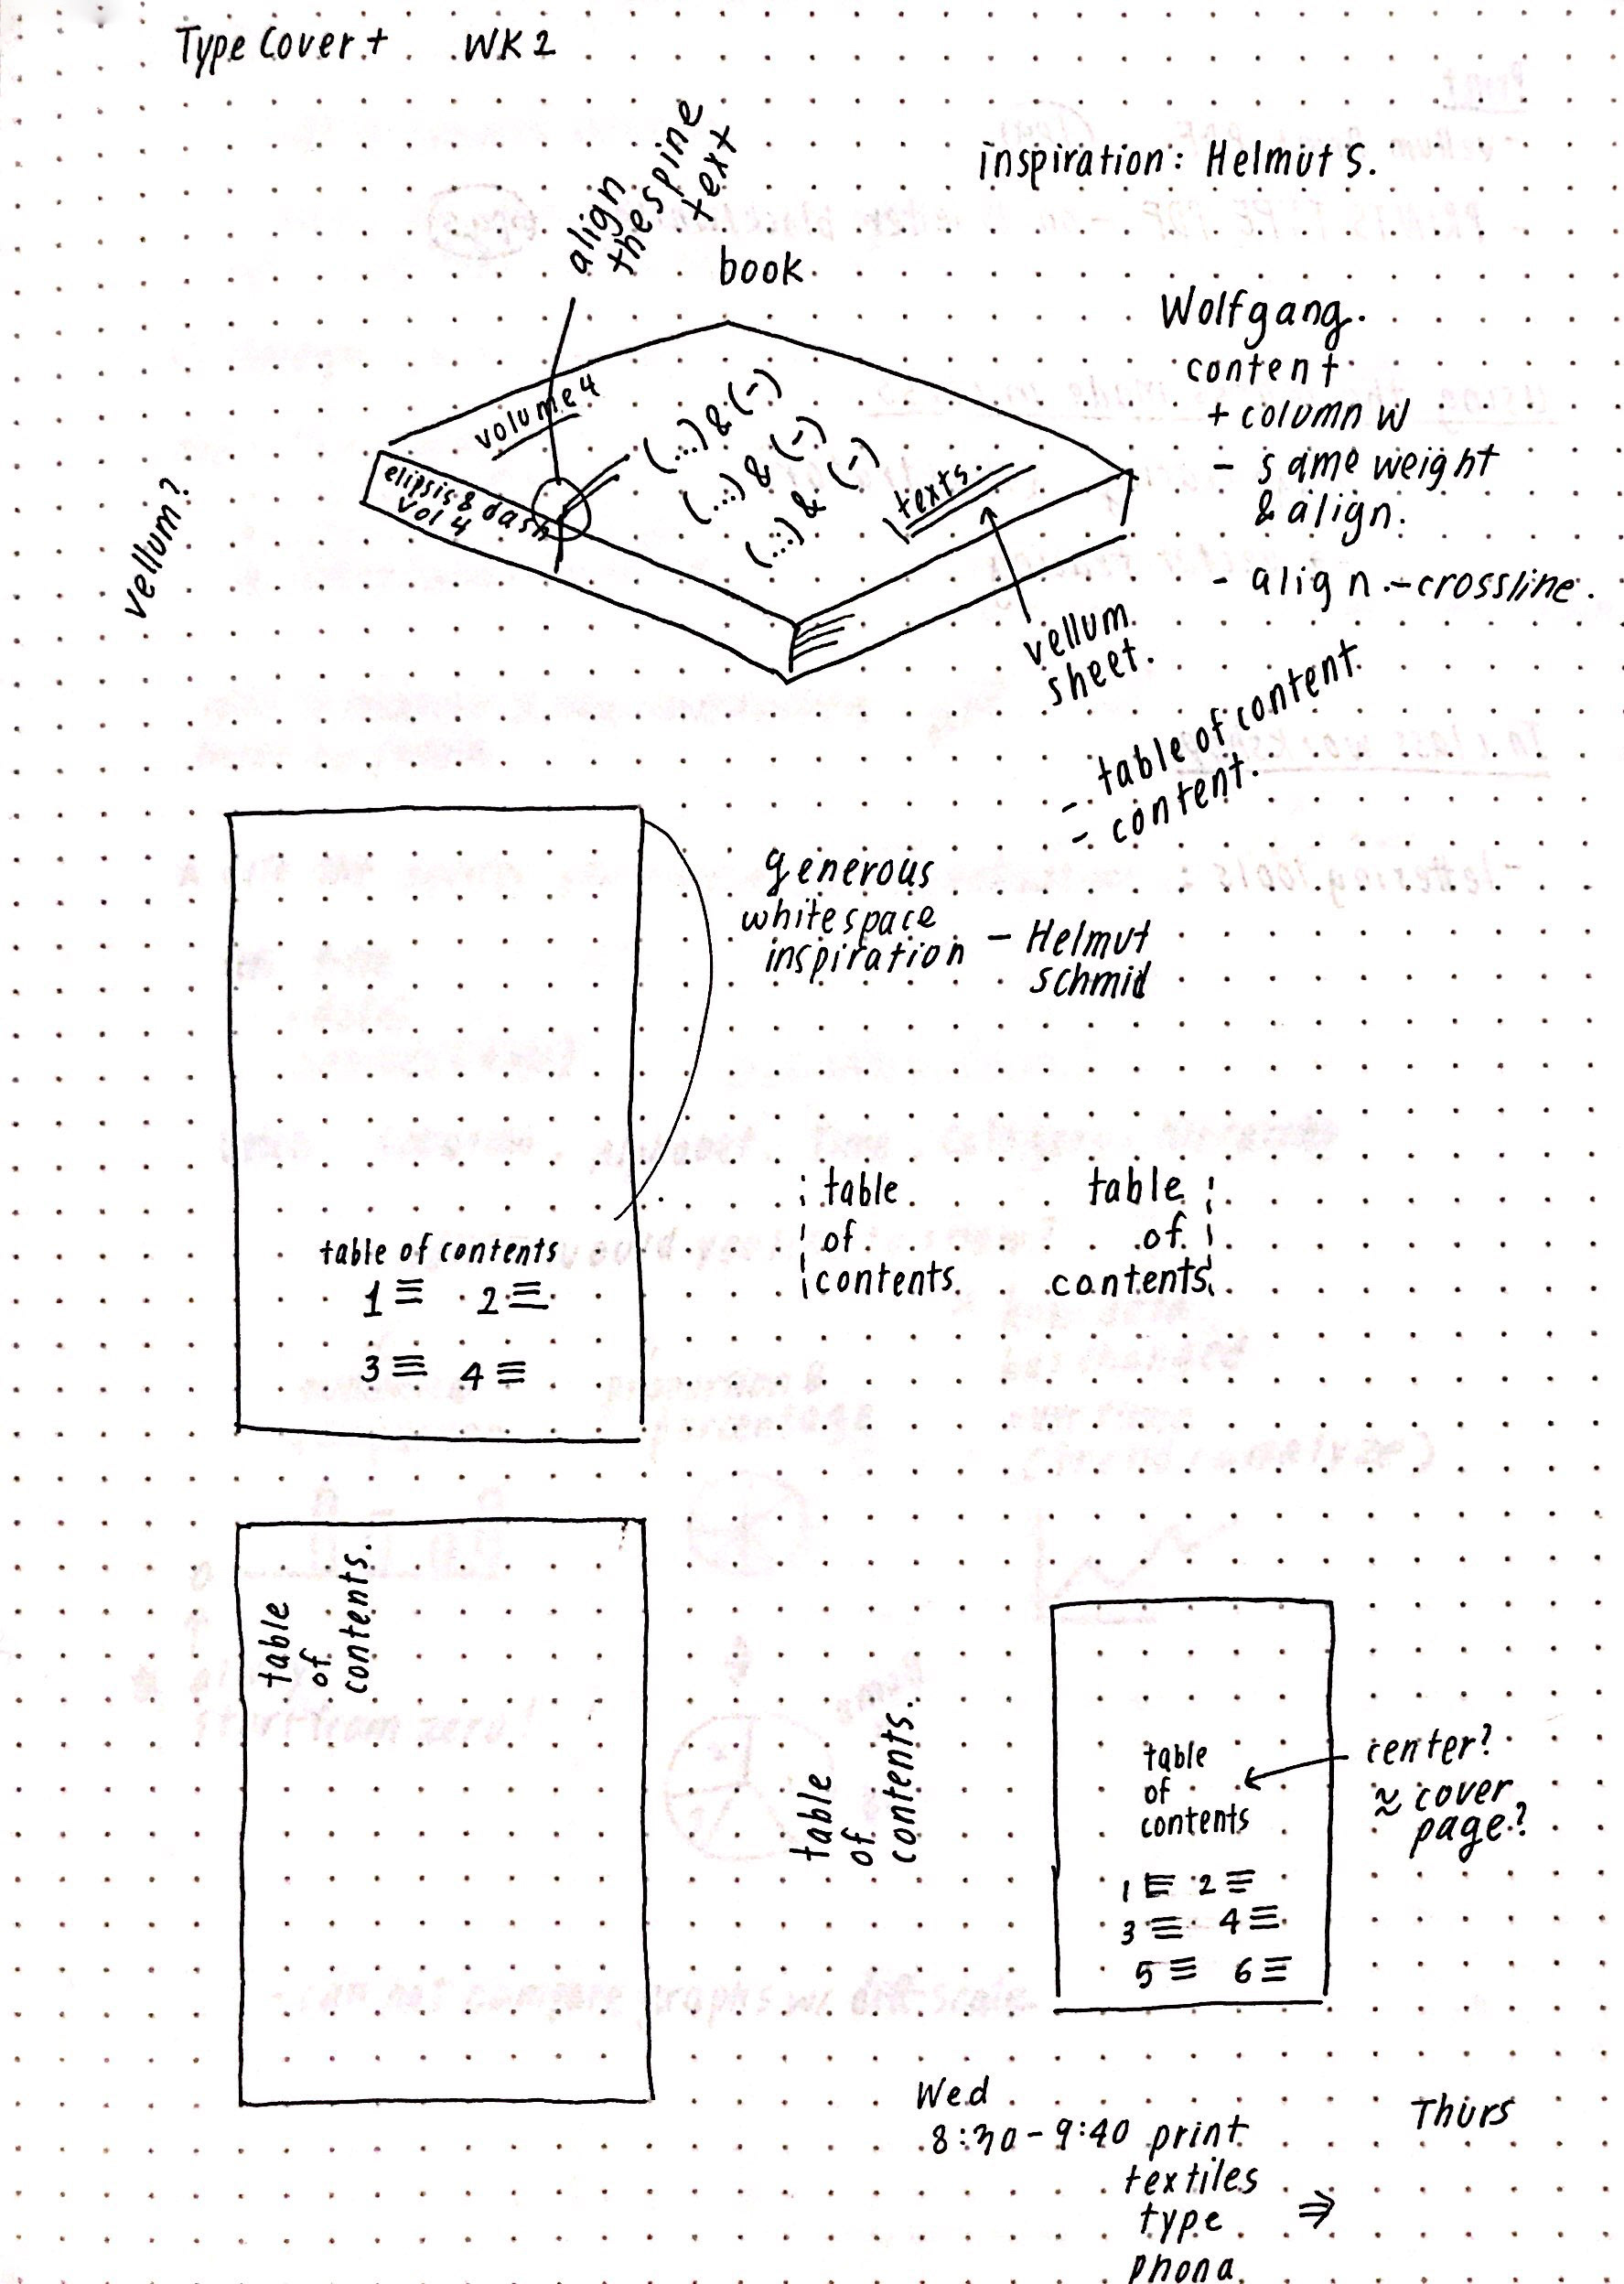 Type Cover + WK 2
inspiration: Helmut S.
align
the spine
text
book.
volume 4
elipsis & dash
vol 4
(...) & (-)
(...) & (-)
(...) & (-)
texts.
vellum?
Wolfgang.
content
+ column W
- same weight
& align.
- align - crossline.
vellum
sheet.
- table of content.
- content.
generous
whitespace
inspiration - Helmut
schmid
table of contents
1 2
3 4
table
of
contents.
table
of
contents
table
of
contents.
table
of
contents.
table
of
contents
1 2
3 4
5 6
center?
≈ cover
page?
Wed
8:30 - 9:40 print
textiles
type ⇒
phona.
Thurs